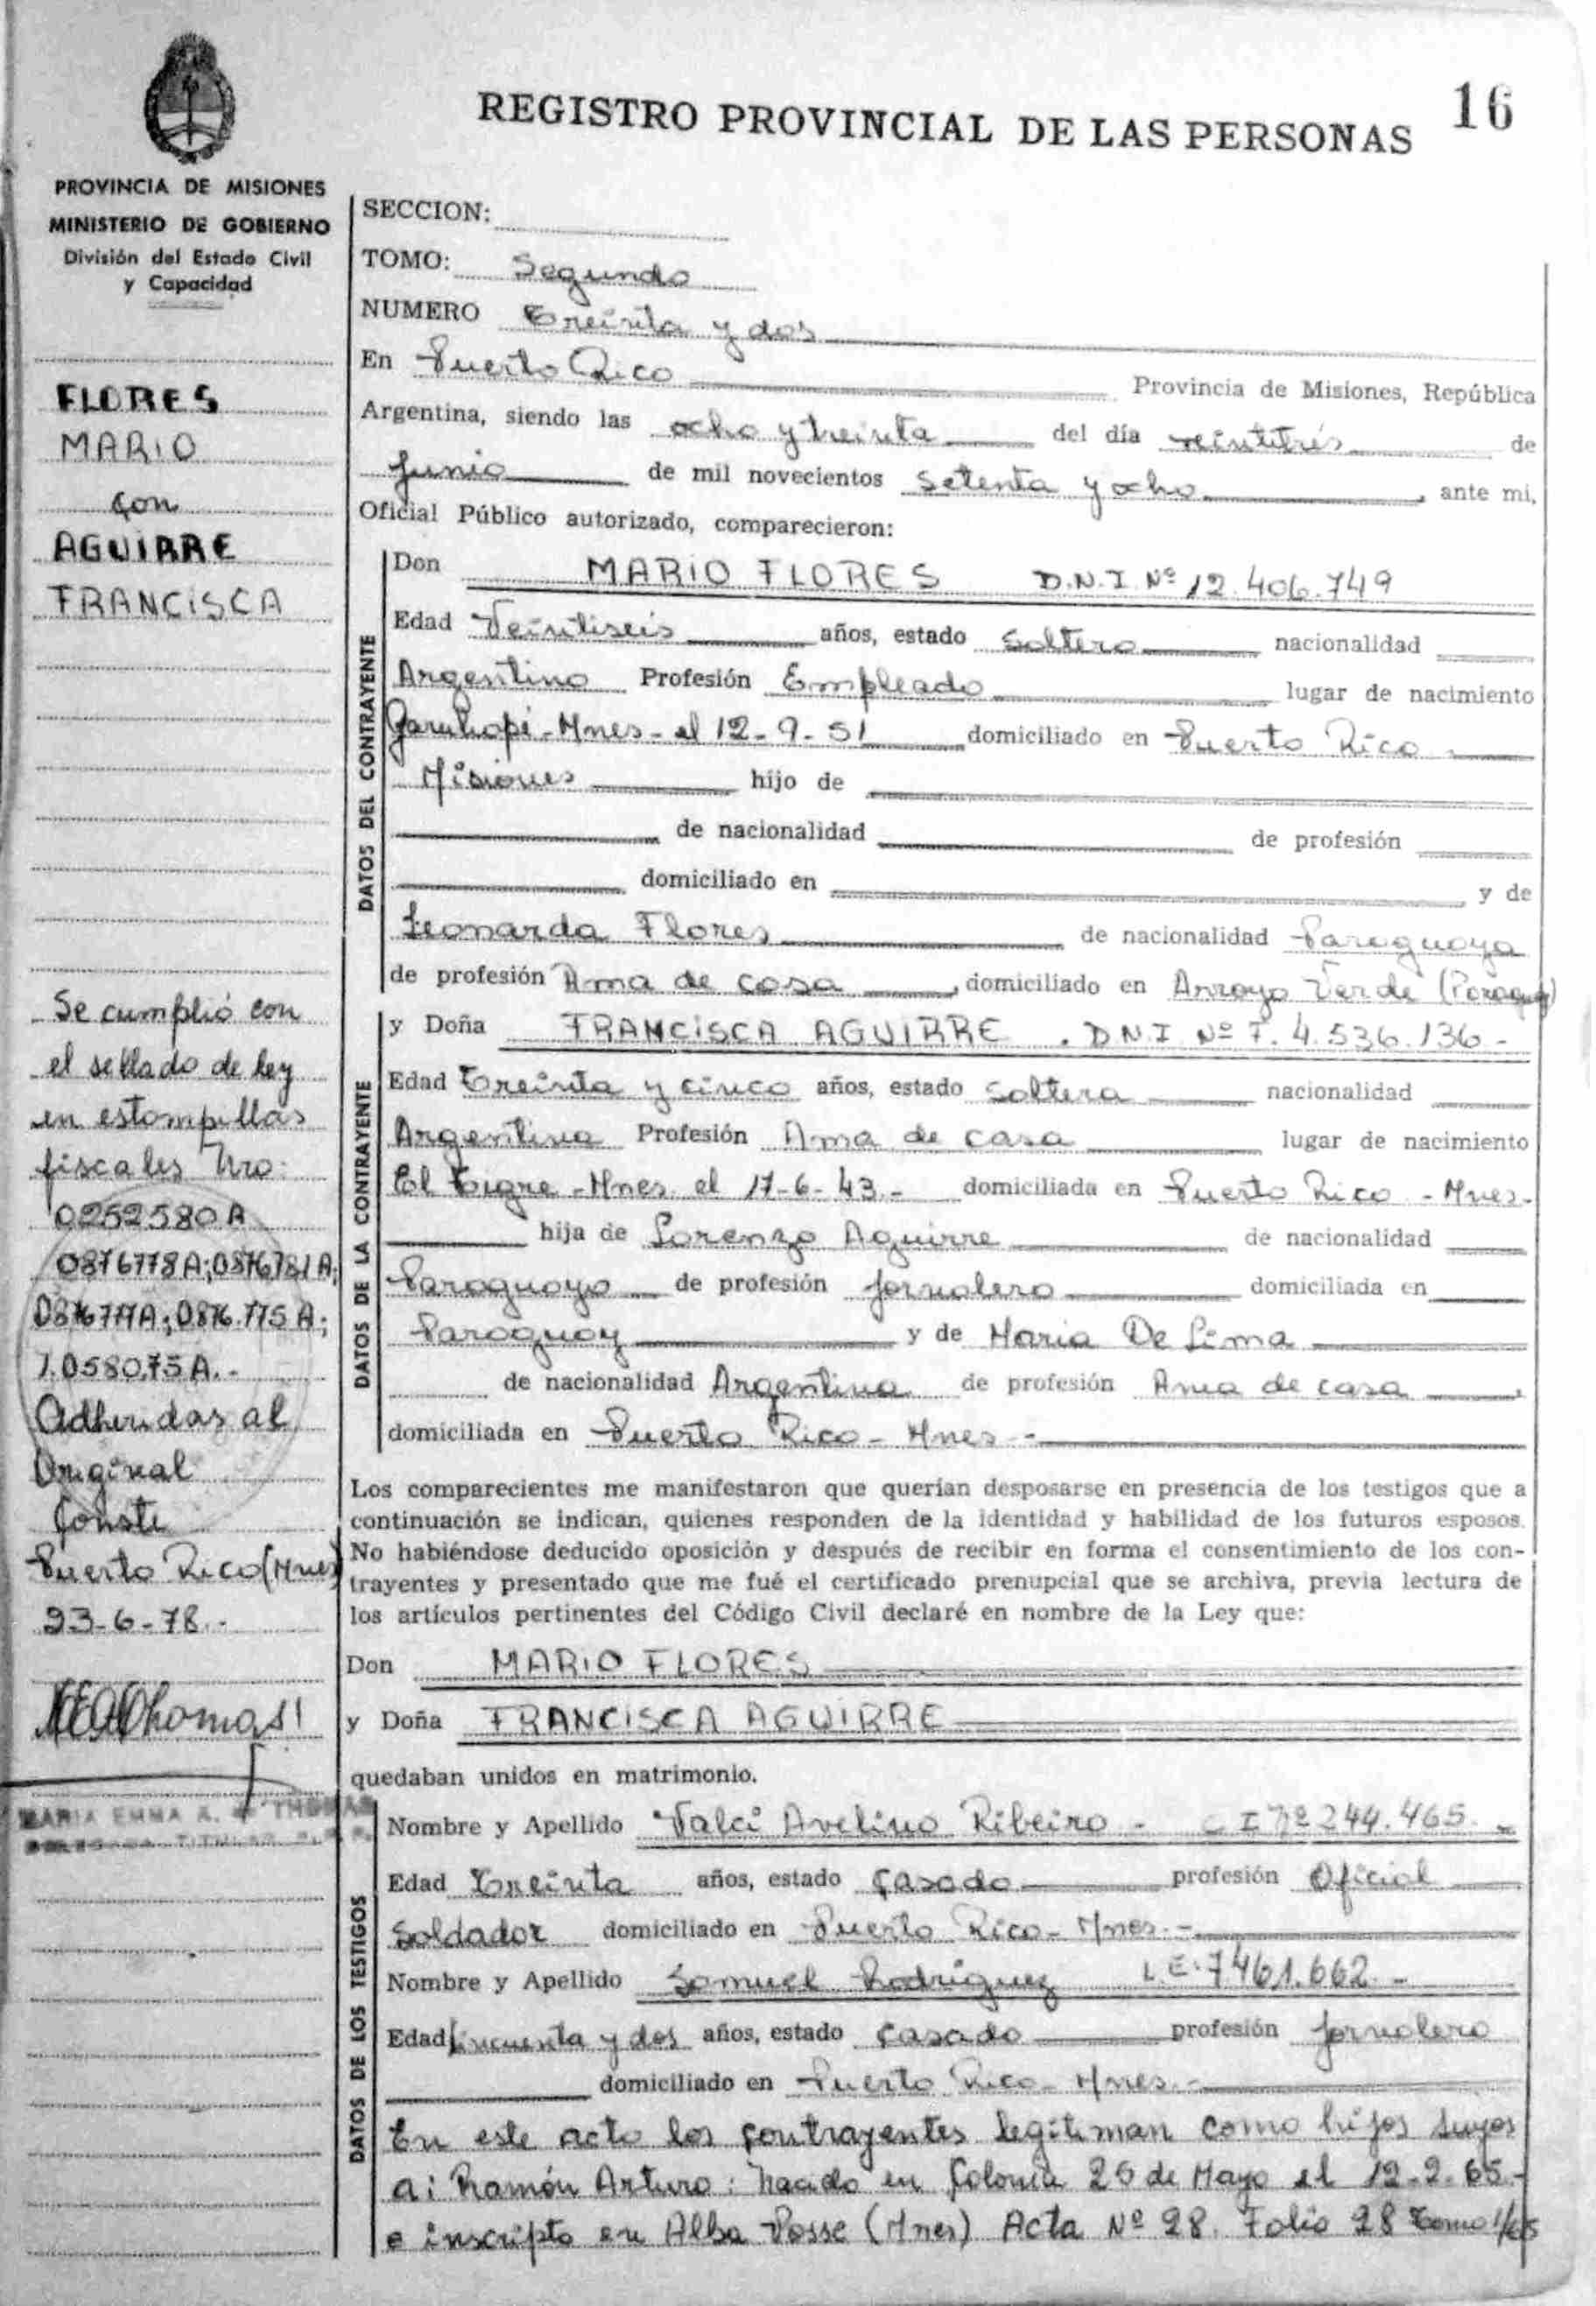 REGISTRO PROVINCIAL DE LAS PERSONAS
16
PROVINCIA DE MISIONES
MINISTERIO DE GOBIERNO
División del Estado Civil
y Capacidad
FLORES
MARIO
con
AGUIRRE
FRANCISCA
Se cumplió con
el sellado de ley
en estampillas
fiscales Nro:
0252580A
0876778A; 0876781A;
0876.775A;
1.058075A.-
Adheridas al
Original
Conste
Puerto Rico (Mnes)
23-6-78.-
MARIA EMMA A.
SECCION:
TOMO: Segundo
NUMERO Treinta y dos
En Puerto Rico Provincia de Misiones, República
Argentina, siendo las ocho y treinta del día veintitrés de
Junio de mil novecientos setenta y ocho, ante mi,
Oficial Público autorizado, comparecieron:
DATOS DEL CONTRAYENTE
Don MARIO FLORES D.N.I. Nº 12.406.749
Edad Veintiseis años, estado Soltero nacionalidad
Argentino Profesión Empleado lugar de nacimiento
Garuhapé - Mnes - el 12-9-51 domiciliado en Puerto Rico -
Misiones hijo de
de nacionalidad de profesión
domiciliado en y de
Leonarda Flores de nacionalidad Paraguaya
de profesión Ama de casa, domiciliado en Arroyo Verde (Paraguay)
DATOS DE LA CONTRAYENTE
y Doña FRANCISCA AGUIRRE . D.N.I. Nº F. 4.536.136-
Edad Treinta y cinco años, estado Soltera nacionalidad
Argentina Profesión Ama de casa lugar de nacimiento
El Tigre - Mnes. el 17-6-43.- domiciliada en Puerto Rico - Mnes-
hija de Lorenzo Aguirre de nacionalidad
Paraguayo de profesión Jornalero domiciliada en
Paraguay y de Maria De Lima
de nacionalidad Argentina de profesión Ama de casa,
domiciliada en Puerto Rico - Mnes -
Los comparecientes me manifestaron que querían desposarse en presencia de los testigos que a
continuación se indican, quienes responden de la identidad y habilidad de los futuros esposos.
No habiéndose deducido oposición y después de recibir en forma el consentimiento de los con-
trayentes y presentado que me fué el certificado prenupcial que se archiva, previa lectura de
los artículos pertinentes del Código Civil declaré en nombre de la Ley que:
Don MARIO FLORES
y Doña FRANCISCA AGUIRRE
quedaban unidos en matrimonio.
DATOS DE LOS TESTIGOS
Nombre y Apellido Valci Avelino Ribeiro - C I Nº 244.465. -
Edad Treinta años, estado Casado profesión Oficial
Soldador domiciliado en Puerto Rico - Mnes. -
Nombre y Apellido Samuel Rodriguez L.E. 7461.662. -
Edad Cincuenta y dos años, estado Casado profesión Jornalero
domiciliado en Puerto Rico - Mnes. -
En este acto los contrayentes legitiman como hijos suyos
a: Ramón Arturo: nacido en Colonia 25 de Mayo el 12-2-65.-
e inscripto en Alba Posse (Mnes) Acta Nº 28. Folio 28 Tomo